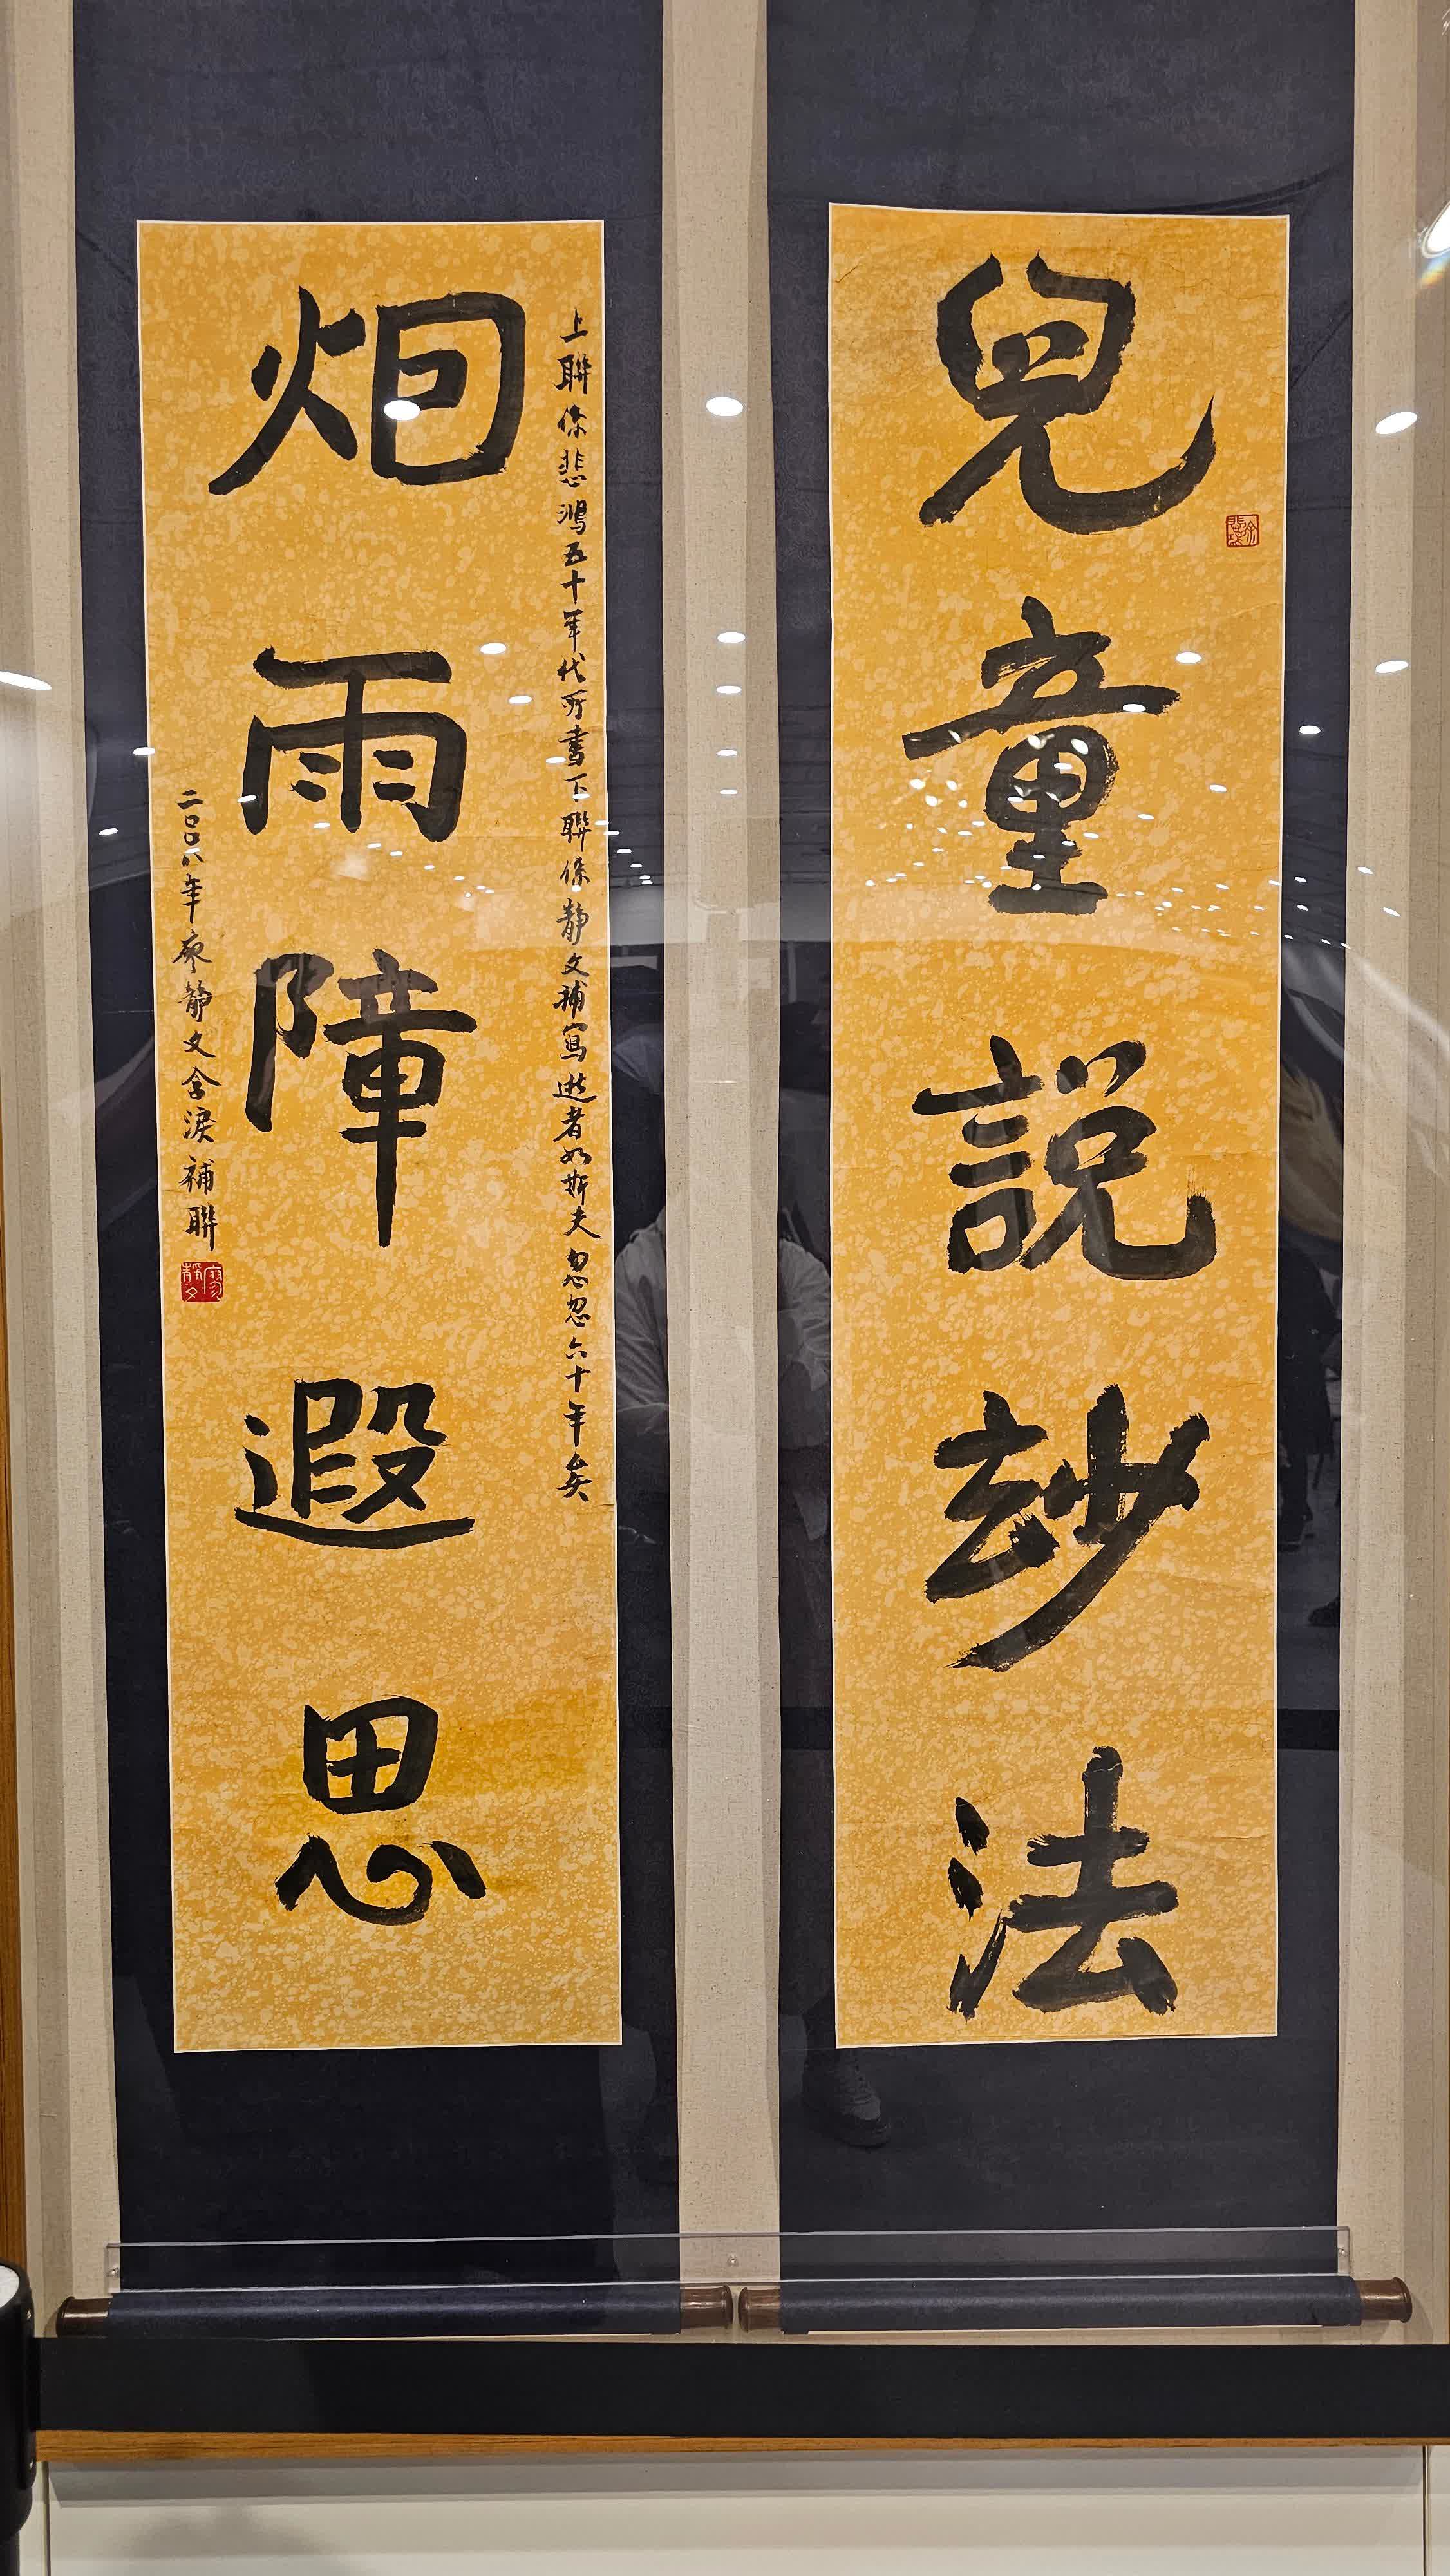 兒童說玅法
徐悲鴻
烟雨障遐思
上聯係悲鴻五十年代所書下聯係靜文補寫逝者如斯夫忽忽六十年矣
二〇〇八年廖靜文含淚補聯
廖靜文